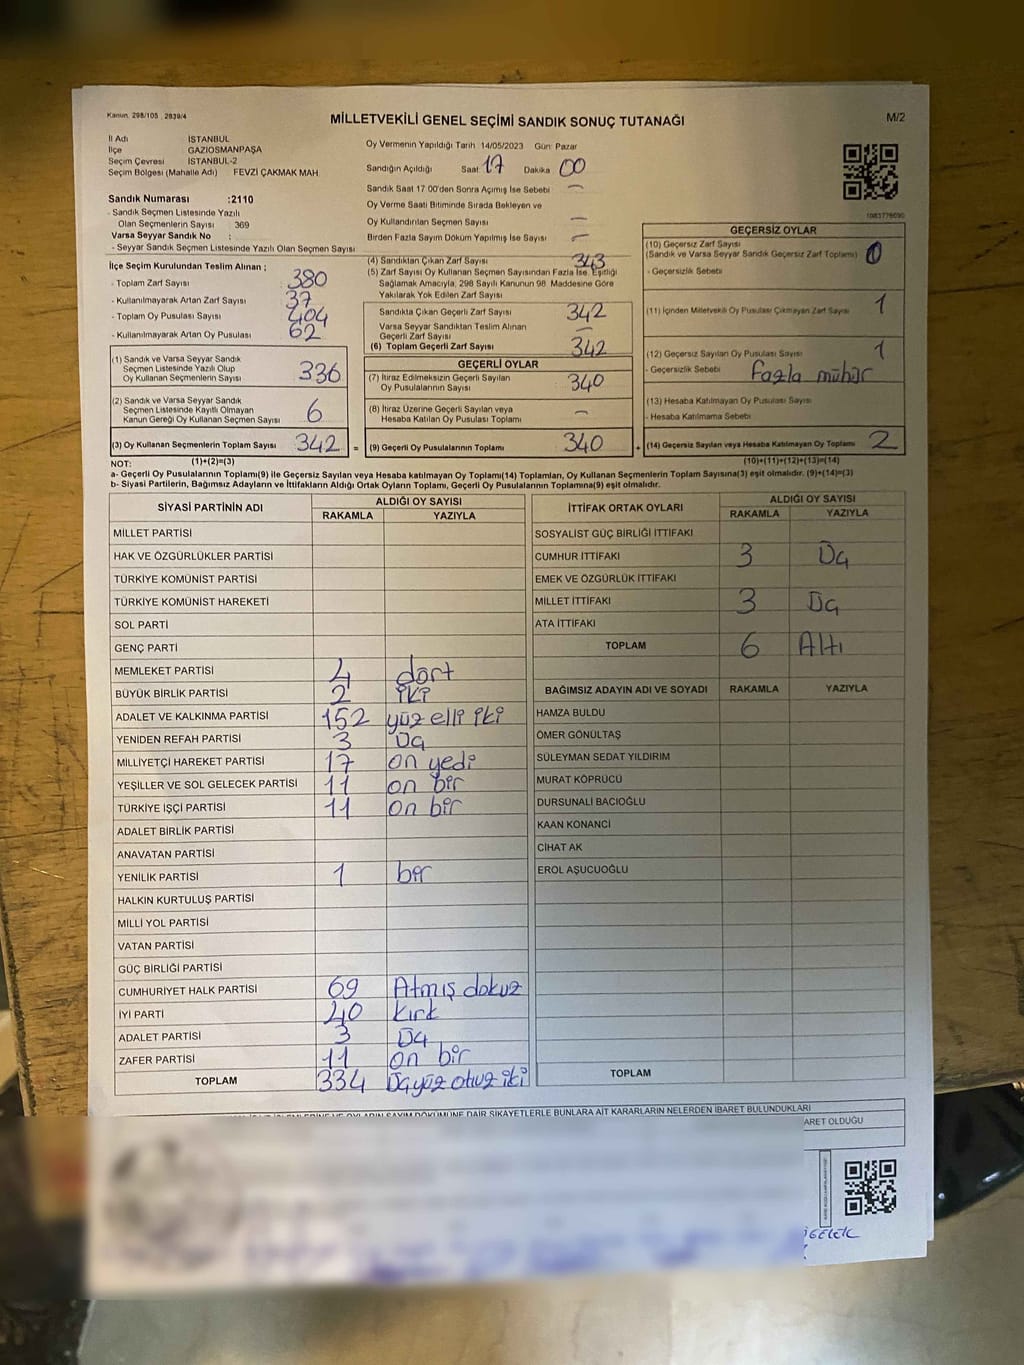 Kanun. 298/105 , 2839/4
MİLLETVEKİLİ GENEL SEÇİMİ SANDIK SONUÇ TUTANAĞI
M/2
İl Adı İSTANBUL
İlçe GAZİOSMANPAŞA
Seçim Çevresi İSTANBUL-2
Seçim Bölgesi (Mahalle Adı) FEVZİ ÇAKMAK MAH.
Sandık Numarası :2110
- Sandık Seçmen Listesinde Yazılı
Olan Seçmenlerin Sayısı : 369
Varsa Seyyar Sandık No :
- Seyyar Sandık Seçmen Listesinde Yazılı Olan Seçmen Sayısı
Oy Vermenin Yapıldığı Tarih 14/05/2023 Gün: Pazar
Sandığın Açıldığı Saat 17 Dakika 00
Sandık Saat 17:00'den Sonra Açımış İse Sebebi –
Oy Verme Saati Bitiminde Sırada Bekleyen ve
Oy Kullandırılan Seçmen Sayısı –
Birden Fazla Sayım Döküm Yapılmış İse Sayısı –
1083778090
İlçe Seçim Kurulundan Teslim Alınan ;
- Toplam Zarf Sayısı 380
- Kullanılmayarak Artan Zarf Sayısı 37
- Toplam Oy Pusulası Sayısı 404
- Kullanılmayarak Artan Oy Pusulası 62
(1) Sandık ve Varsa Seyyar Sandık
Seçmen Listesinde Yazılı Olup
Oy Kullanan Seçmenlerin Sayısı 336
(2) Sandık ve Varsa Seyyar Sandık
Seçmen Listesinde Kayıtlı Olmayan
Kanun Gereği Oy Kullanan Seçmen Sayısı 6
(3) Oy Kullanan Seçmenlerin Toplam Sayısı 342 =
(4) Sandıktan Çıkan Zarf Sayısı 343
(5) Zarf Sayısı Oy Kullanan Seçmen Sayısından Fazla İse, Eşitliği
Sağlamak Amacıyla, 298 Sayılı Kanunun 98. Maddesine Göre
Yakılarak Yok Edilen Zarf Sayısı
Sandıkta Çıkan Geçerli Zarf Sayısı 342
Varsa Seyyar Sandıktan Teslim Alınan
Geçerli Zarf Sayısı –
(6) Toplam Geçerli Zarf Sayısı 342
GEÇERLİ OYLAR
(7) İtiraz Edilmeksizin Geçerli Sayılan
Oy Pusulalarının Sayısı 340
(8) İtiraz Üzerine Geçerli Sayılan veya
Hesaba Katılan Oy Pusulası Toplamı –
(9) Geçerli Oy Pusulalarının Toplamı 340 +
GEÇERSİZ OYLAR
(10) Geçersiz Zarf Sayısı
(Sandık ve Varsa Seyyar Sandık Geçersiz Zarf Toplamı) 0
- Geçersizlik Sebebi
(11) İçinden Milletvekili Oy Pusulası Çıkmayan Zarf Sayısı 1
(12) Geçersiz Sayılan Oy Pusulası Sayısı 1
- Geçersizlik Sebebi fazla mühür
(13) Hesaba Katılmayan Oy Pusulası Sayısı
- Hesaba Katılmama Sebebi
(14) Geçersiz Sayılan veya Hesaba Katılmayan Oy Toplamı 2
NOT: (1)+(2)=(3) (10)+(11)+(12)+(13)=(14)
a- Geçerli Oy Pusulalarının Toplamı(9) ile Geçersiz Sayılan veya Hesaba katılmayan Oy Toplamı(14) Toplamları, Oy Kullanan Seçmenlerin Toplam Sayısına(3) eşit olmalıdır. (9)+(14)=(3)
b- Siyasi Partilerin, Bağımsız Adayların ve İttifakların Aldığı Ortak Oyların Toplamı, Geçerli Oy Pusulalarının Toplamına(9) eşit olmalıdır.
SİYASİ PARTİNİN ADI ALDIĞI OY SAYISI
RAKAMLA YAZIYLA
MİLLET PARTİSİ
HAK VE ÖZGÜRLÜKLER PARTİSİ
TÜRKİYE KOMÜNİST PARTİSİ
TÜRKİYE KOMÜNİST HAREKETİ
SOL PARTİ
GENÇ PARTİ
MEMLEKET PARTİSİ 4 dört
BÜYÜK BİRLİK PARTİSİ 2 iki
ADALET VE KALKINMA PARTİSİ 152 yüz elli iki
YENİDEN REFAH PARTİSİ 3 Üç
MİLLİYETÇİ HAREKET PARTİSİ 17 on yedi
YEŞİLLER VE SOL GELECEK PARTİSİ 11 on bir
TÜRKİYE İŞÇİ PARTİSİ 11 on bir
ADALET BİRLİK PARTİSİ
ANAVATAN PARTİSİ
YENİLİK PARTİSİ 1 bir
HALKIN KURTULUŞ PARTİSİ
MİLLİ YOL PARTİSİ
VATAN PARTİSİ
GÜÇ BİRLİĞİ PARTİSİ
CUMHURİYET HALK PARTİSİ 69 Atmış dokuz
İYİ PARTİ 40 kırk
ADALET PARTİSİ 3 Üç
ZAFER PARTİSİ 11 on bir
TOPLAM 334 Üçyüz otuz iki
İTTİFAK ORTAK OYLARI ALDIĞI OY SAYISI
RAKAMLA YAZIYLA
SOSYALİST GÜÇ BİRLİĞİ İTTİFAKI
CUMHUR İTTİFAKI 3 Üç
EMEK VE ÖZGÜRLÜK İTTİFAKI
MİLLET İTTİFAKI 3 Üç
ATA İTTİFAKI
TOPLAM 6 Altı
BAĞIMSIZ ADAYIN ADI VE SOYADI RAKAMLA YAZIYLA
HAMZA BULDU
ÖMER GÖNÜLTAŞ
SÜLEYMAN SEDAT YILDIRIM
MURAT KÖPRÜCÜ
DURSUNALİ BACIOĞLU
KAAN KONANCİ
CİHAT AK
EROL AŞUCUOĞLU
TOPLAM
OYLARIN SAYIM DÖKÜMÜNE DAİR ŞİKAYETLERLE BUNLARA AİT KARARLARIN NELERDEN İBARET BULUNDUKLARI
ARET OLDUĞU